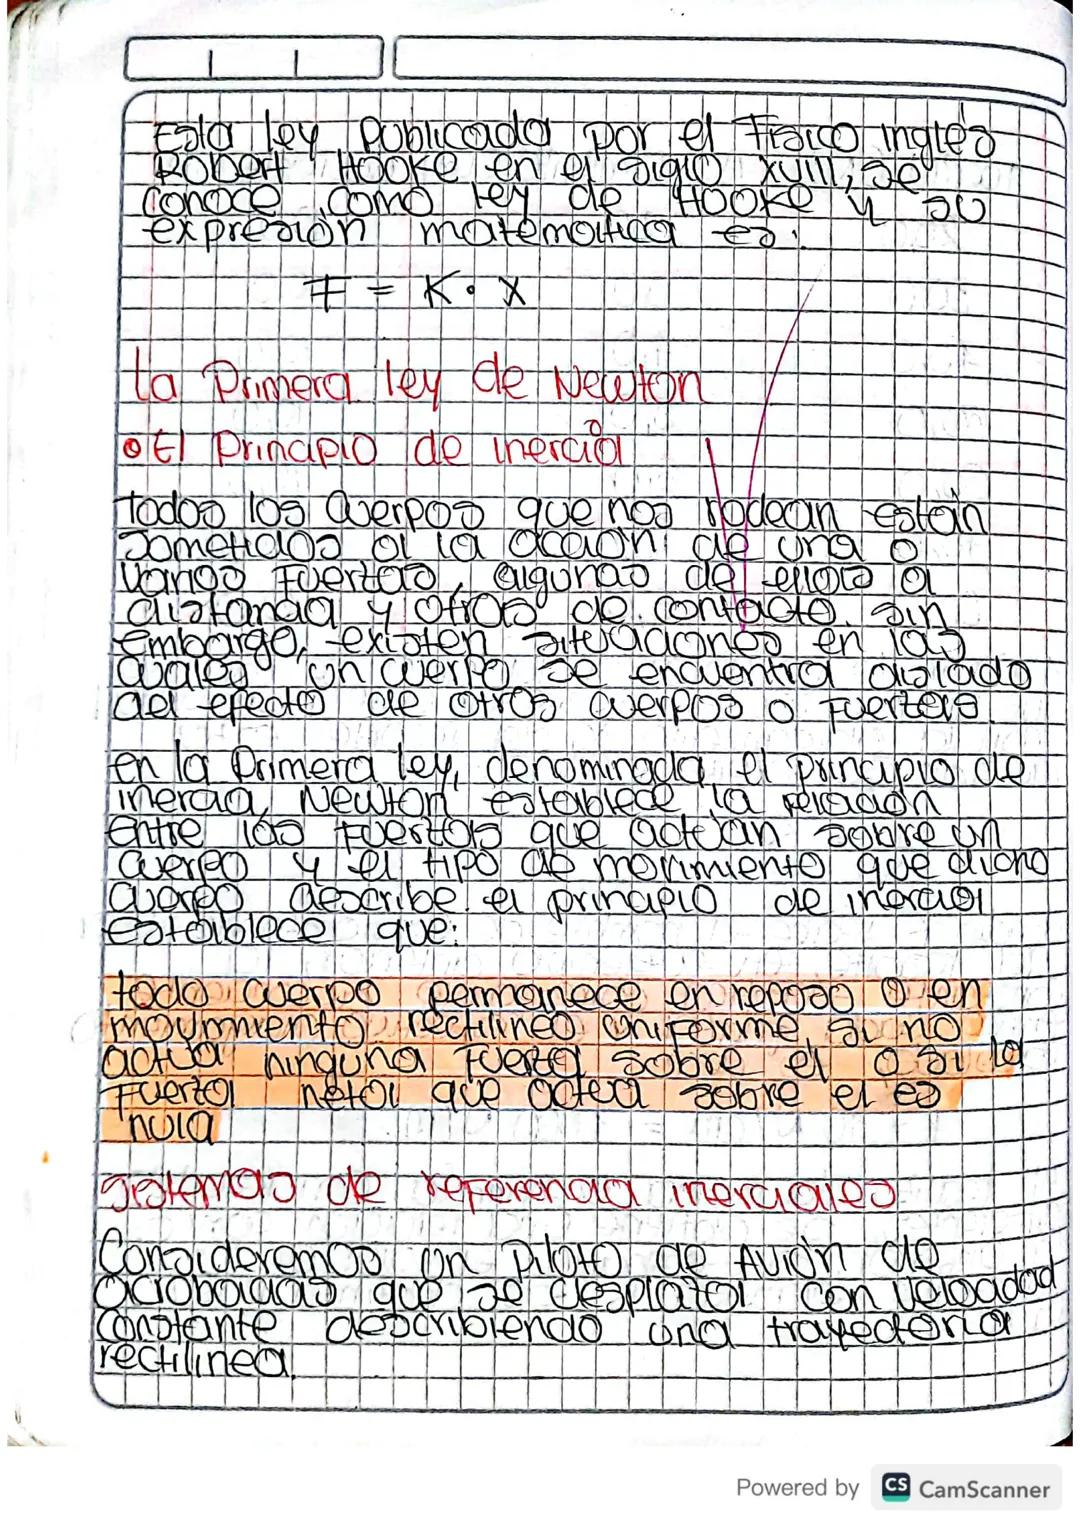 Esta ley Publicada por el Físico inglés
Robert Hooke en el siglo XVIII, se
conoce como ley de Hooke y su
expresión matemática es:
F = K · X
La Primera ley de Newton
• El Principio de inercia
Todos los Cuerpos que nos rodean están
sometidos a la acción de una o
varias Fuerzas, algunas de ellas a
distancia y otras de contacto. Sin
embargo, existen situaciones en las
cuales un cuerpo se encuentra aislado
del efecto de otros cuerpos o Fuerzas.
en la Primera ley, denominada el principio de
inercia, Newton establece la relación
entre las Fuerzas que actúan sobre un
cuerpo y el tipo de movimiento que dicho
cuerpo describe. el principio de inercia
establece que:
todo cuerpo permanece en reposo o en
movimiento rectilíneo uniforme, si no
actua ninguna Fuerza sobre el o si la
Fuerza neta que actua sobre el es
nula
sistemas de referencia inerciales
Consideremos un Piloto de Avión de
acrobacias que se desplaza con Velocidad
Constante describiendo una trayectoria
rectilinea.
Powered by CS CamScanner